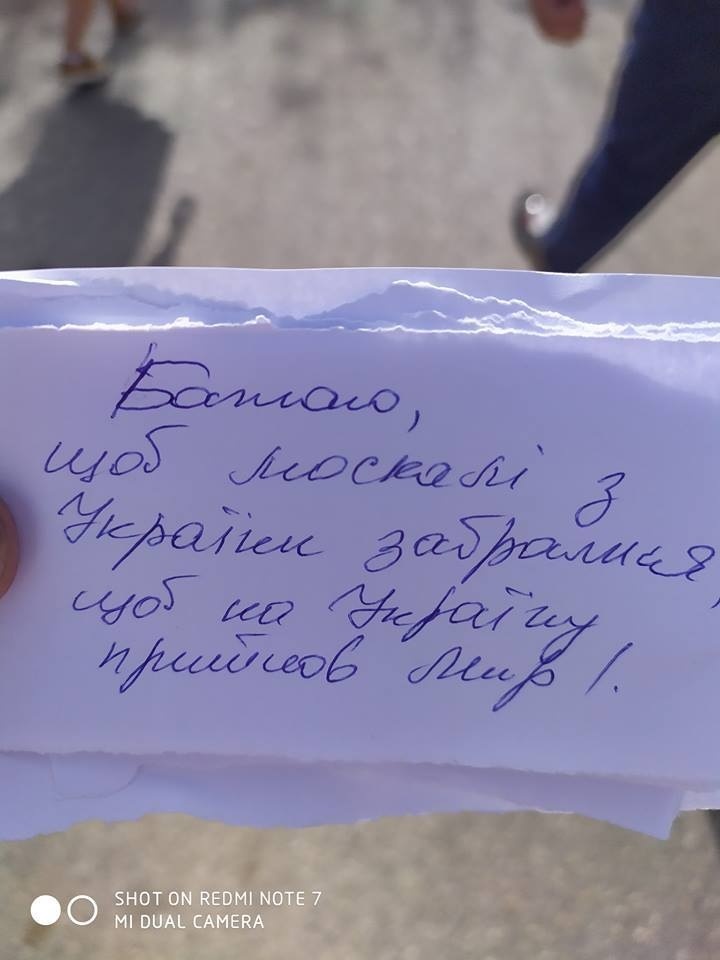 Бажаю,
щоб москалі з
України забралися,
щоб на Україну
прийшов мир!
SHOT ON REDMI NOTE 7
MI DUAL CAMERA